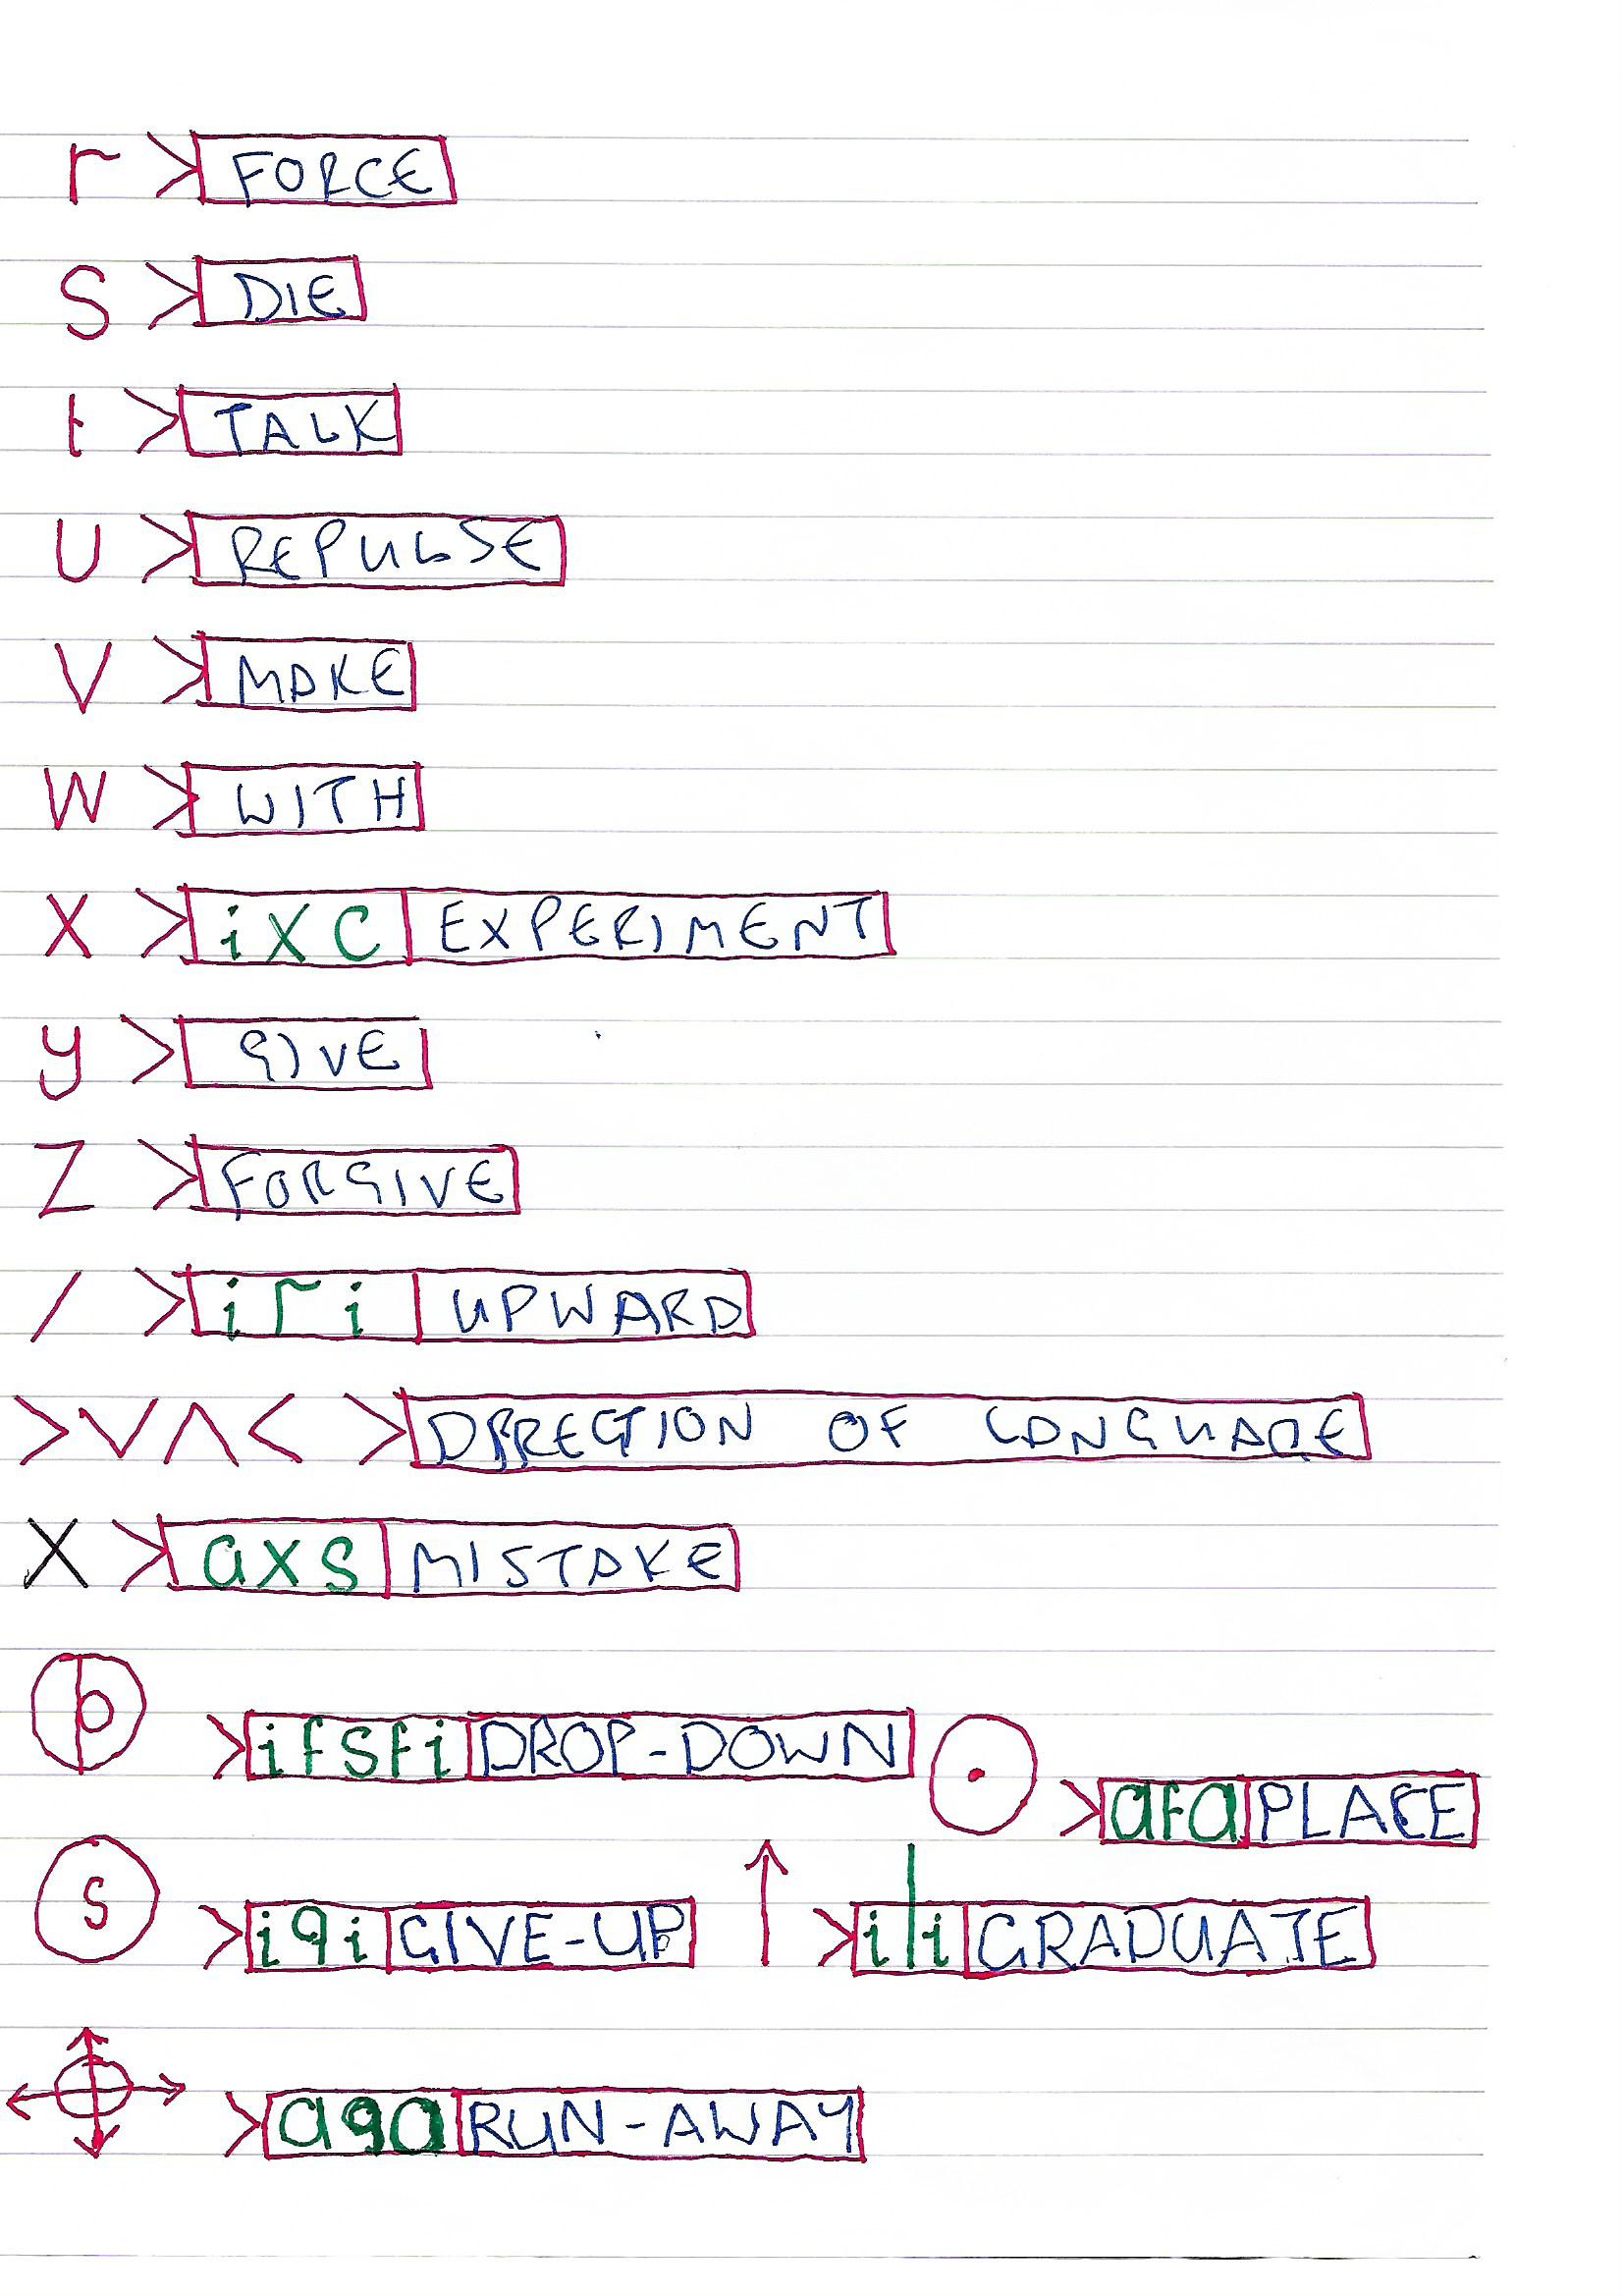 r > FORCE
S > DIE
t > TALK
U > REPULSE
V > MAKE
W > WITH
X > ixc EXPERIMENT
y > GIVE
Z > FORGIVE
/ > iri UPWARD
> V Λ < > DIRECTION OF LANGUAGE
X > axs MISTAKE
p > ifsfi DROP-DOWN
> afa PLACE
S > iqi GIVE-UP ↑ > ili GRADUATE
> aga RUN-AWAY